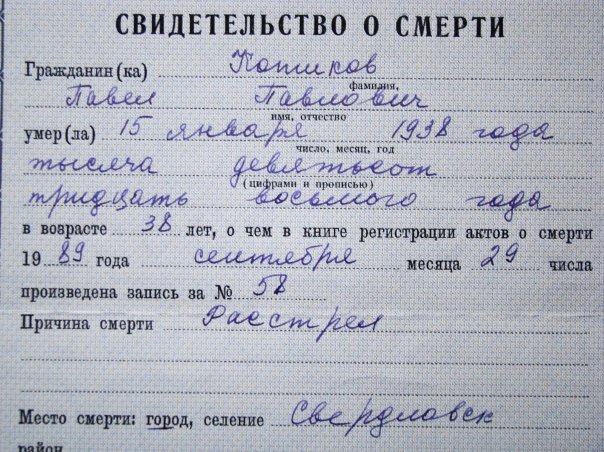 СВИДЕТЕЛЬСТВО О СМЕРТИ
Гражданин(ка) Копиков
фамилия,
Павел Павлович
имя, отчество
умер(ла) 15 января 1938 года
число, месяц, год
тысяча девятьсот
(цифрами и прописью)
тридцать восьмого года
в возрасте 38 лет, о чем в книге регистрации актов о смерти
19 89 года сентября месяца 29 числа
произведена запись за № 58
Причина смерти Расстрел
Место смерти: город, селение Свердловск
район